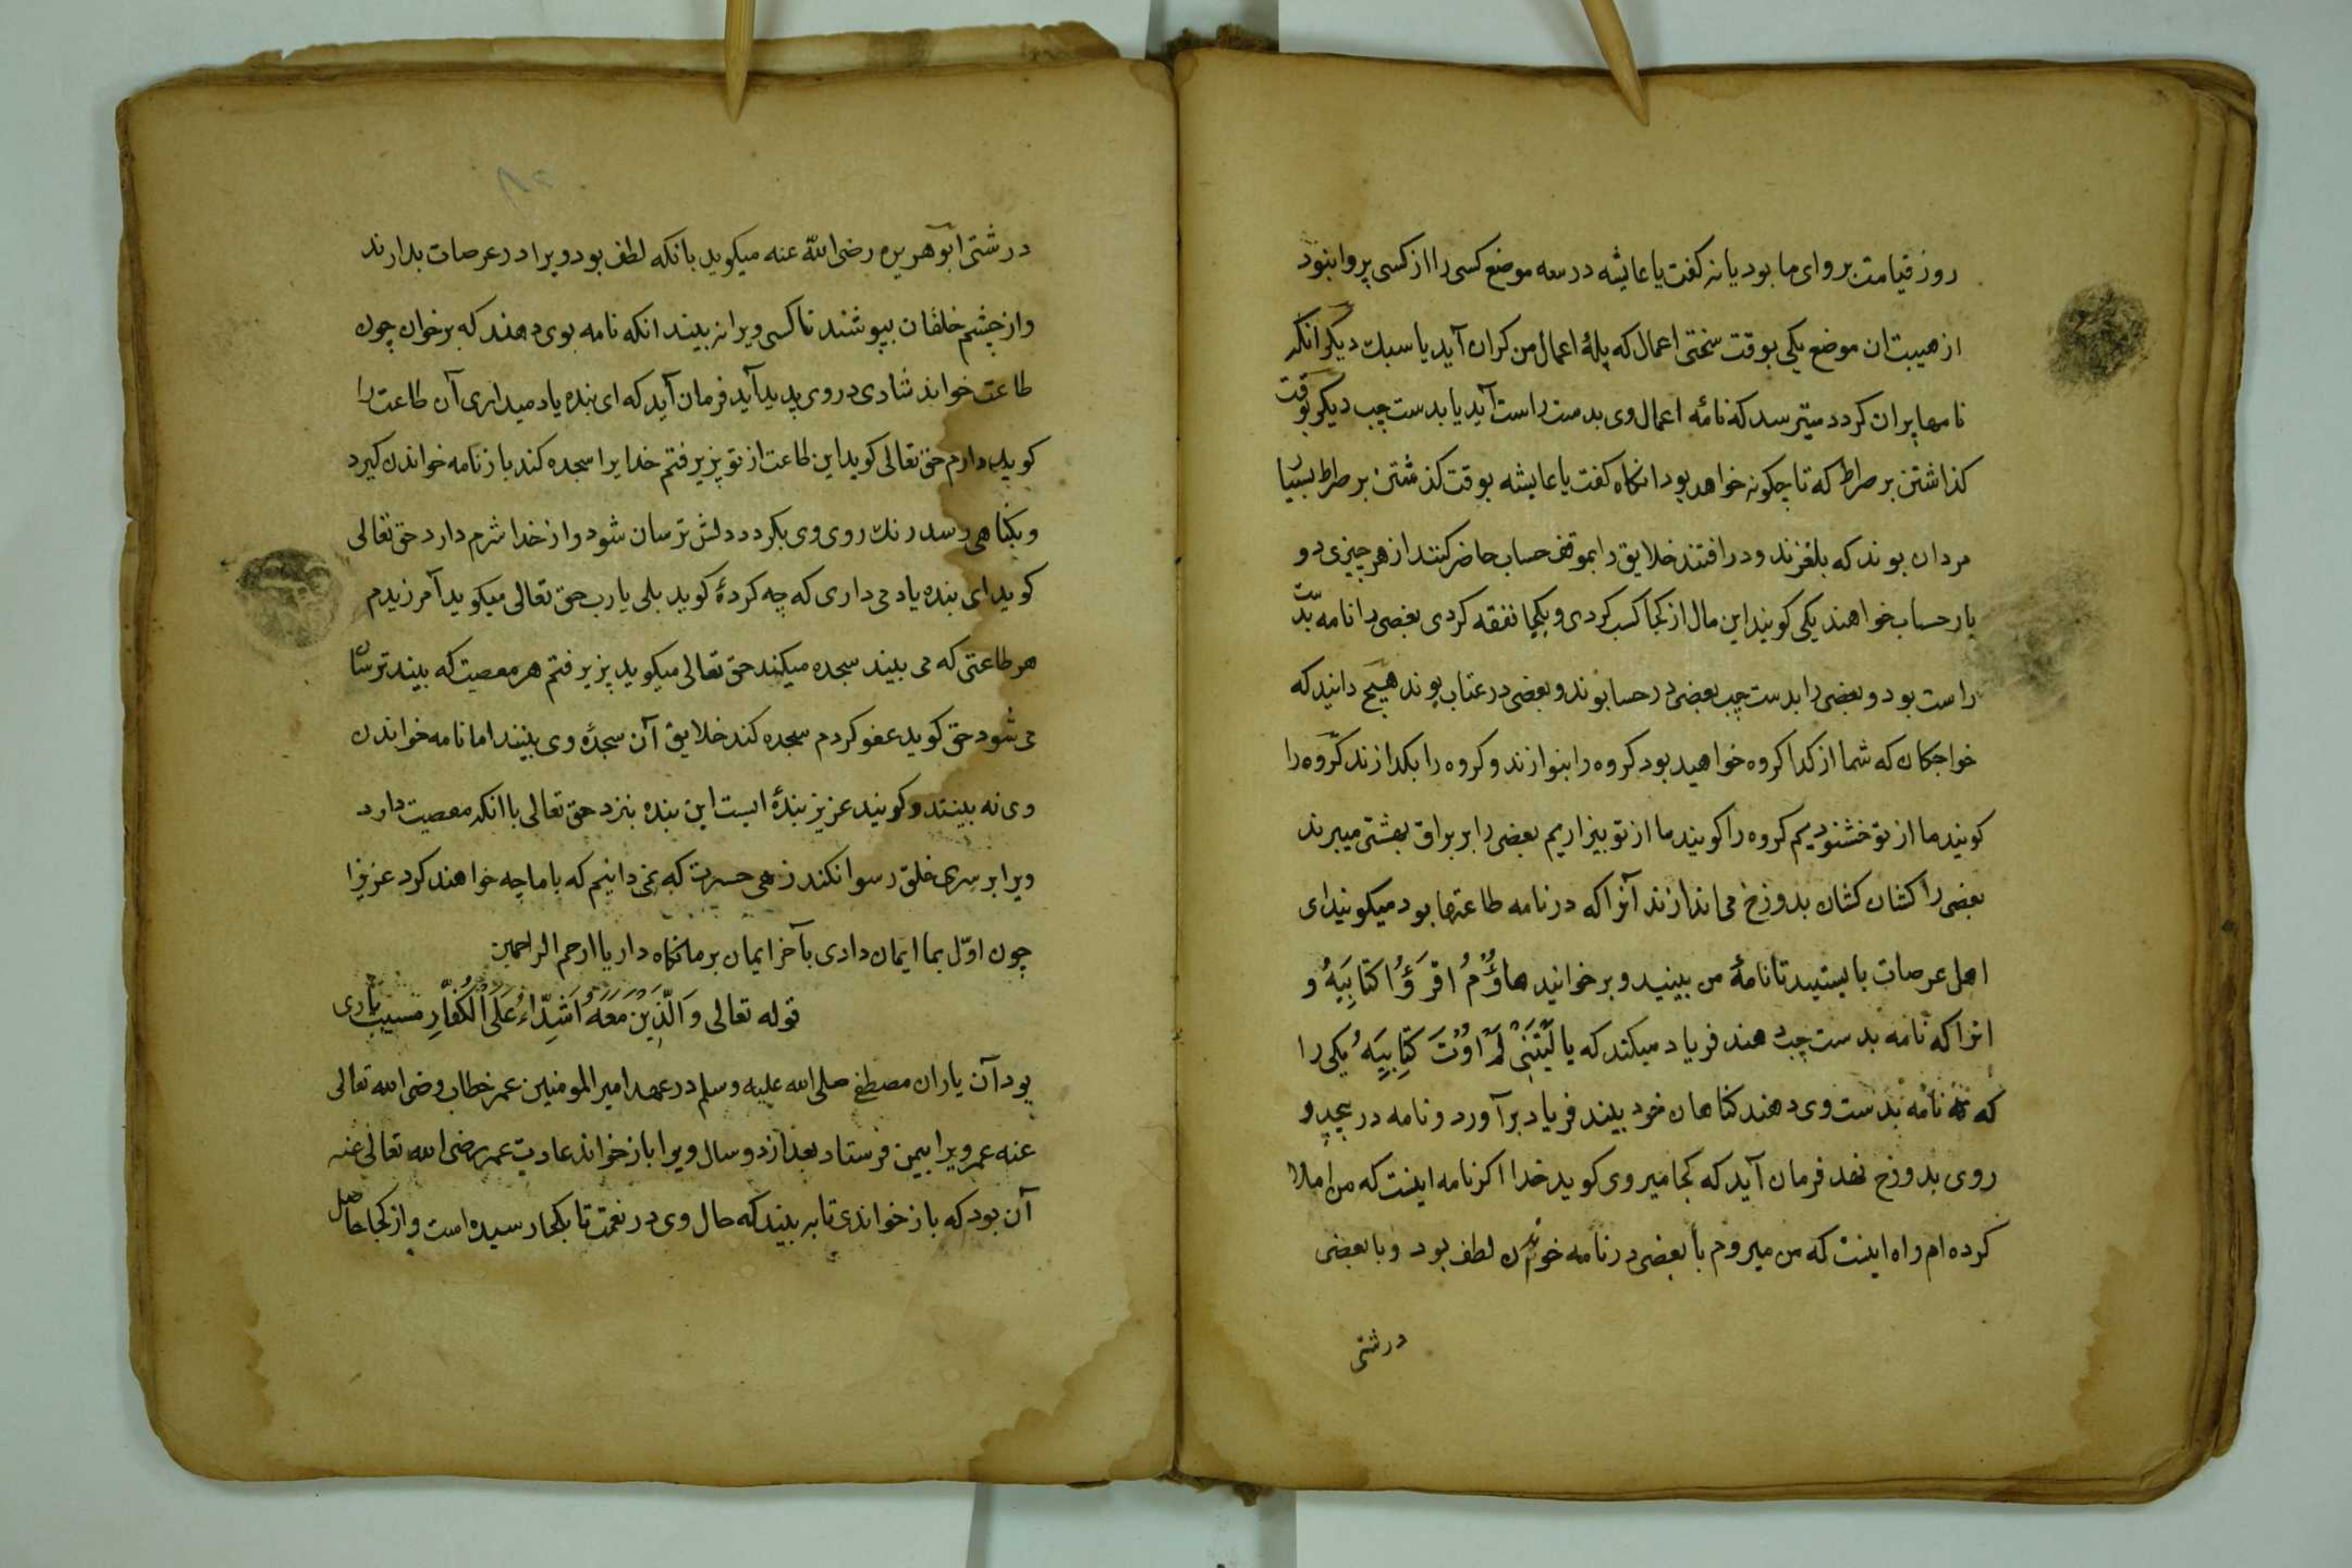 روز قیامت پروای ما بود یا نه کفت یا عایشه در سه موضع کسی را از کسی پروا نبود
از هیبت ان موضع یکی بوقت سختی اعمال که پلهٔ اعمال من کران آید یا سبک دیکر انکه
نامها پران کردد میترسد که نامهٔ اعمال وی بدست راست آید یا بدست چپ دیکر بوقت
کذاشتن بر صراط که تا چکونه خواهد بود انکاه کفت یا عایشه بوقت کذشتن بر صراط بسیا
مردان بوند که بلغزند و درافتند خلایق را بموقف حساب حاضر کنند از هر چیزی دو
بار حساب خواهند یکی کویند این مال از کجا کسب کردی و بکجا نفقه کردی بعضی را نامه بدست
راست بود و بعضی را بدست چپ بعضی در حسا بوند و بعضی در عتاب بوند هیچ دانید که
خواجکان که شما از کدا کروه خواهید بود کروه را بنوازند و کروه را بکدازند کروه را
کویند ما از تو خشنودیم کروه را کویند ما از تو بیزاریم بعضی را بر براق بهشتی میبرند
بعضی را کشان کشان بدوزخ می اندازند آنرا که در نامه طاعتها بود میکویند ای
اهل عرصات بایستید تا نامهٔ من ببینید و برخوانید هاؤُمُ اقرَؤُا کتابِیَهْ و
انرا که نامه بدست چپ دهند فریاد میکند که یا لَیْتَنِی لَمْ اُوْتَ کِتابِیَهْ یکی را
که نامه بدست وی دهند کناهان خود بیند فریاد برآورد و نامه در پیچد و
روی بدوزخ نهد فرمان آید که کجا میروی کوید خدا اکر نامه اینست که من املا
کرده ام راه اینست که من میروم با بعضی در نامه خواندن لطف بود و با بعضی
درشتی
درشتی ابوهریره رضی الله عنه میکوید بانکه لطف بود ویرا در عرصات بدارند
و از چشم خلقان بپوشند تا کسی ویرا نه بیند انکه نامه بوی دهند که برخوان چون
طاعت خواند شادی در روی پدید آید فرمان آید که ای بنده یاد میداری آن طاعت را
کوید دارم حق تعالی کوید این طاعت از تو پزیرفتم خدایرا سجده کند باز نامه خواندن کیرد
و بکناهی رسد رنک روی وی بکردد دلش ترسان شود و از خدا شرم دارد حق تعالی
کوید ای بنده یاد می داری که چه کردهٔ کوید بلی یا رب حق تعالی میکوید آمرزیدم
هر طاعتی که می بیند سجده میکند حق تعالی میکوید پزیرفتم هر معصیت که بیند ترسان
می شود حق کوید عفو کردم سجده کند خلایق آن سجدهٔ وی بینند اما نامه خواندن
وی نه بینند و کویند عزیز بندهٔ ایست این بنده بنزد حق تعالی با انکه معصیت دارد
ویرا بر سری خلق رسوا نکند زهی حسرت که نمی دانیم که با ما چه خواهند کرد عزیزا
چون اوّل بما ایمان دادی بآخر ایمان بر ما نکاه دار یا ارحم الراحمین
قوله تعالی وَالَّذِینَ مَعَهُ اَشِدّاءُ عَلَی الْکُفّارِ مسیب یاری
بود آن یاران مصطفی صلی الله علیه وسلم در عهد امیر المومنین عمر خطاب رضی الله تعالی
عنه عمر ویرا بیمن فرستاد بعد از دو سال ویرا باز خواند عادت عمر رضی الله تعالی عنه
آن بود که باز خواندی تا به بیند که حال وی در نعمت تا بکجا رسیده است و از کجا حاصل